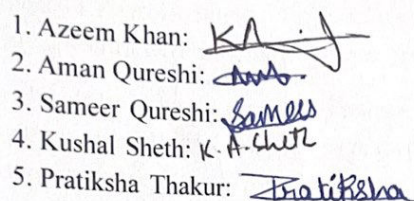 1. Azeem Khan:
2. Aman Qureshi:
3. Sameer Qureshi: Sameer
4. Kushal Sheth: K. A. Sheth
5. Pratiksha Thakur: Pratiksha